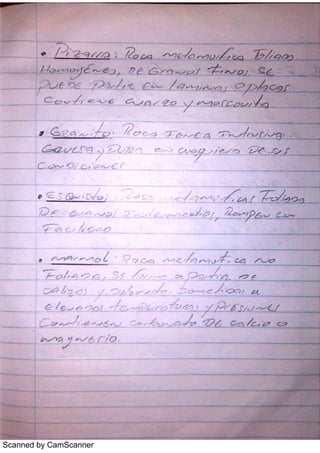 • Pizarra: Roca metamorfica Foliada
Homogénea, DE Granos Finos SE
puede partir en laminas o placas.
Contiene cuarzo y moscovita
• Granito: Roca Ignea Intrusiva
Gruesa y Dura en cualquiera De sus
Condiciones
• Esquistos: Rocas metamorficas Foliadas
De Granos Intermedios, Rompen con
Facilidad
• marmol: Roca metamorfica no
Foliada, se forma a partir de
calizas y sometidas a
elevadas temperaturas y Presiones
Contienen carbonato De calcio o
magnesio
Scanned by CamScanner